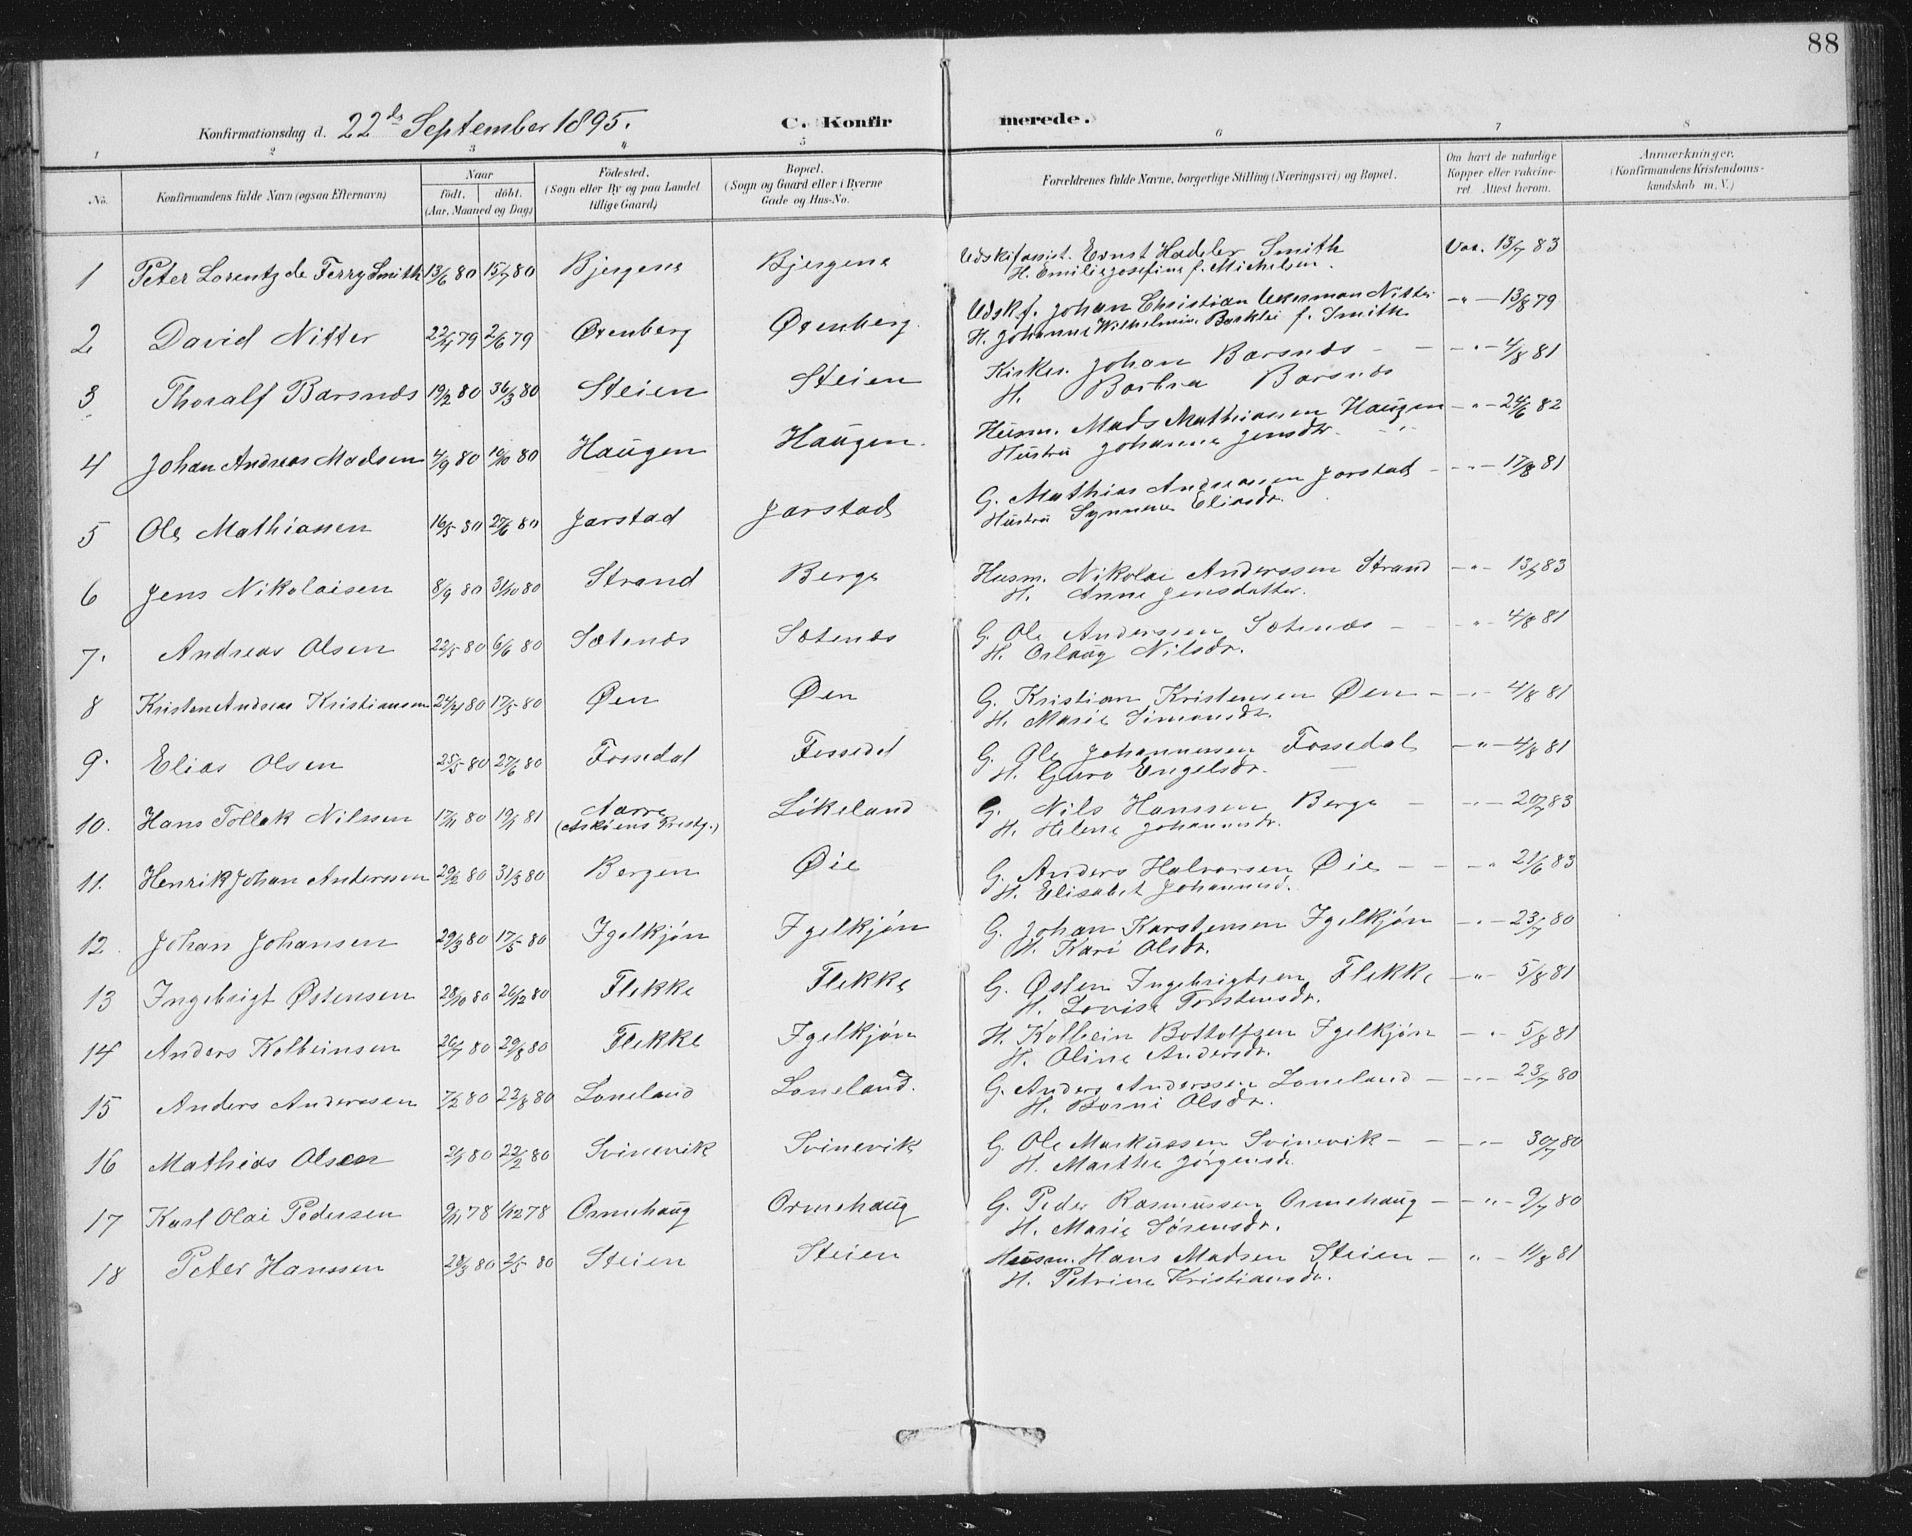 88
Konfirmationsdag d. 22de September 1895.
C. Konfirmerede.
1 2 3 4 5 6 7 8
No.
Konfirmandens fulde Navn (ogsaa Efternavn)
Naar
födt. döbt.
(Aar, Maaned og Dag)
Födested.
(Sogn eller By og paa Landet
tillige Gaard)
Bopæl.
(Sogn og Gaard eller i Byerne
Gade og Hus-No.
Forældrenes fulde Navne, borgerlige Stilling (Næringsvei) og Bopæl.
Om havt de naturlige
Kopper eller vakcine-
ret Attest herom.
Anmærkninger.
(Konfirmandens Kristendoms-
kundskab m. V.)
1 Peter Lorentz de Ferry Smith 13/6 80 15/7 80 Bjergene Bjergene Udskifassist. Ernst Hadeler Smith Vac. 13/7 83
H. Emilie Josefine f. Michelsen.
2 David Nitter 22/4 79 2/6 79 Øvenberg Øvenberg. Udskf. Johan Christian Nitter -"- 13/8 79
H. Johanne Wilhelmine f. Smith
3 Thoralf Barsnes 19/2 80 /3 80 Steien Steien Kirkes. Johan Barsnes - -"- 4/8 81
H. Barbra Barsnes
4 Johan Andreas Madsen 4/9 80 10/10 80 Haugen Haugen. Husm. Mads Mathiassen Haugen -"- 24/6 82
Hustru Johanne Jensdtr.
5 Ole Mathiassen 16/5 80 27/6 80 Jarstad Jarstad G. Mathias Andreassen Jarstad -"- 17/8 81
Hustru Synneve Eliasdr.
6 Jens Nikolaisen 8/9 80 31/10 80 Strand Berge Husm. Nikolai Anderssen Strand -"- 13/7 83
H. Anne Jensdatter.
7. Andreas Olsen 22/5 80 6/6 80 Sætenes Sætenes G. Ole Anderssen Sætenes - " - 4/8 81
H. Orlaug Nilsdr.
8 Kristen Andreas Kristiansen 24/4 80 17/5 80 Øen Øen G. Kristian Kristensen Øen -"- 4/8 81
H. Marie Simonsdr.
9. Elias Olsen 25/5 80 27/6 80 Fossedal Fossedal G. Ole Johannessen Fossedal -"- 4/8 81
H. Guro Engelsdr.
10. Hans Tollak Nilssen 17/11 80 19/1 81 Aarre Løkeland G. Nils Hanssen Berge - " - 20/7 83
(Askøens Prestg.) H. Helene Johannesdr.
11. Henrik Johan Anderssen 29/2 80 31/3 80 Bergen Øie G. Anders Halvorsen Øie - " 21/6 83
H. Elisabet Johannesd.
12. Johan Johansen 29/3 80 17/5 80 Igelkjøn Igelkjøn G. Johan Karstensen Igelkjøn -"- 23/7 80
H. Kari Olsdr.
13 Ingebrigt Østensen 28/10 80 26/12 80 Flekke Flekke G. Østen Ingebrigtsen Flekke -"- 5/8 81
H. Lovise Torstensdr.
14 Anders Kolbeinsen 26/7 80 29/8 80 Flekke Igelkjøn H. Kolbein Bottolfsen Igelkjøn - " - 5/8 81
H. Oline Andersdr.
15 Anders Anderssen 7/2 80 22/8 80 Loneland Loneland. G. Anders Anderssen Loneland - " - 23/7 80
H. Borni Olsdr.
16 Mathias Olsen 2/1 80 22/2 80 Svinevik Svinevik G. Ole Markussen Svinevik - -"- 30/7 80
H. Marthe Jørgensdr.
17 Karl Olai Pedersen 9/11 78 1/12 78 Ormehaug Ormehaug G. Peder Rasmussen Ormehaug - -"- 9/7 80
H. Marie Sørensdr.
18 Peter Hanssen 28/3 80 2/5 80 Steien Steien Husm. Hans Madsen Steien - " - 11/8 81
H. Petrine Kristiansdr.